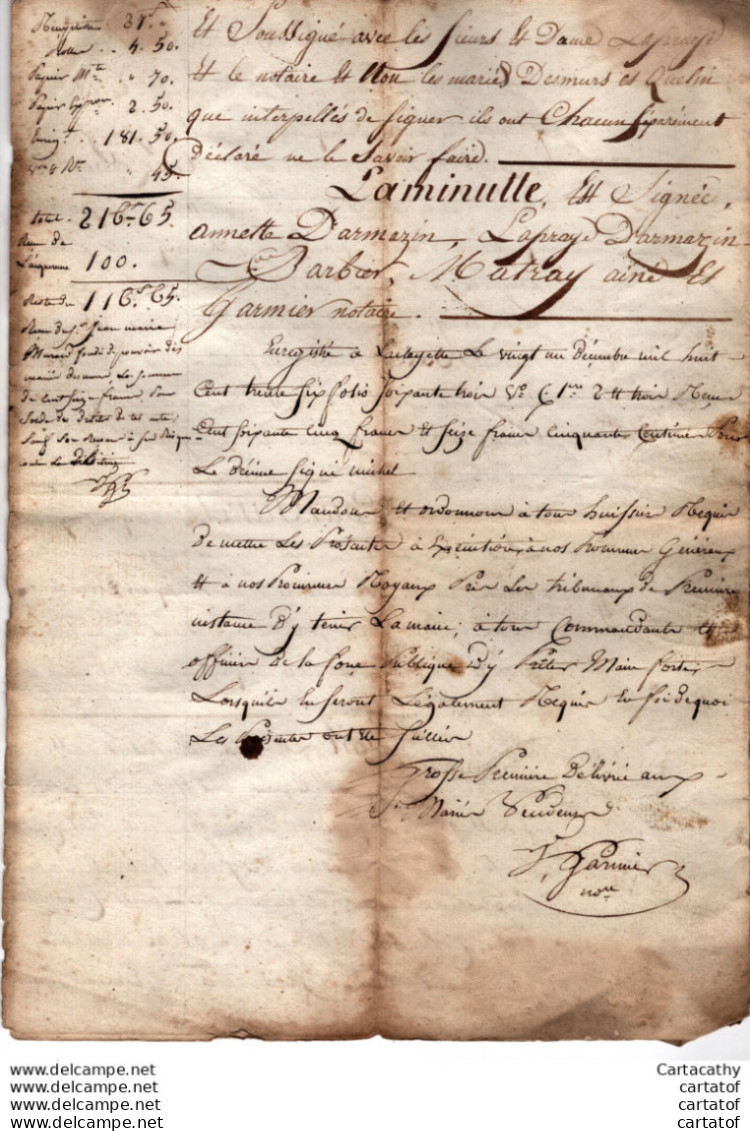 37.
4. 50.
Papier 70.
Papier 2. 50.
181. 50.
45.
total. 216. 65.
100.
116. 65.
Jean marie
pouvoir des
La somme
de cent seize francs Pour
Solde de
Sauf Son
Et Soussigné avec les Sieurs Et Dame Lapraye
Et le notaire Et Non les mariés Desmurs et Quelin
que interpellés de signer ils ont Chacun séparément
déclaré ne le Savoir faire.
Laminutte, Est Signée,
annette Darmazin, Lapraye Darmazin
Barbier, Matray ainé Et
Garmier notaire.
Enregistré à Le vingt un décembre mil huit
Cent trente Six folio Soixante trois Vo C. 1re 2 et trois Reçu
Cent Soixante Cinq francs Et Seize francs Cinquante Centimes Pour
Le décime Signé michel
Mandons et ordonnons à tous huissiers Requis
De mettre Les Présentes à Exécution, à nos Procureurs Généraux
Et à nos Procureurs Royaux Près Les tribunaux de Première
instance d'y tenir La main; à tous Commandants Et
officiers de la force Publique d'y Prêter Main forte
Lorsquils En Seront Légalement Requis En foi de quoi
Les Présentes ont été Scellées
Grosse Première Délivrée aux
Mariés Vendeurs
Garmier
nore
www.delcampe.net
www.delcampe.net
www.delcampe.net
www.delcampe.net
Cartacathy
cartatof
cartatof
cartatof